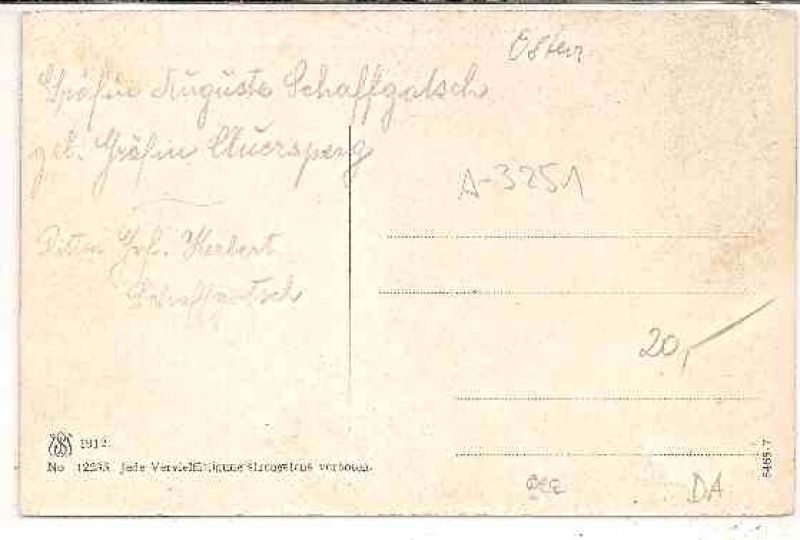 Osten
Gräfin Auguste Schaffgotsch
geb. Gräfin Auersperg
A-3251
Herbert
Schaffgotsch
20,-
1912
No 12233 Jede Vervielfältigung strengstens verboten.
5465-7
DA